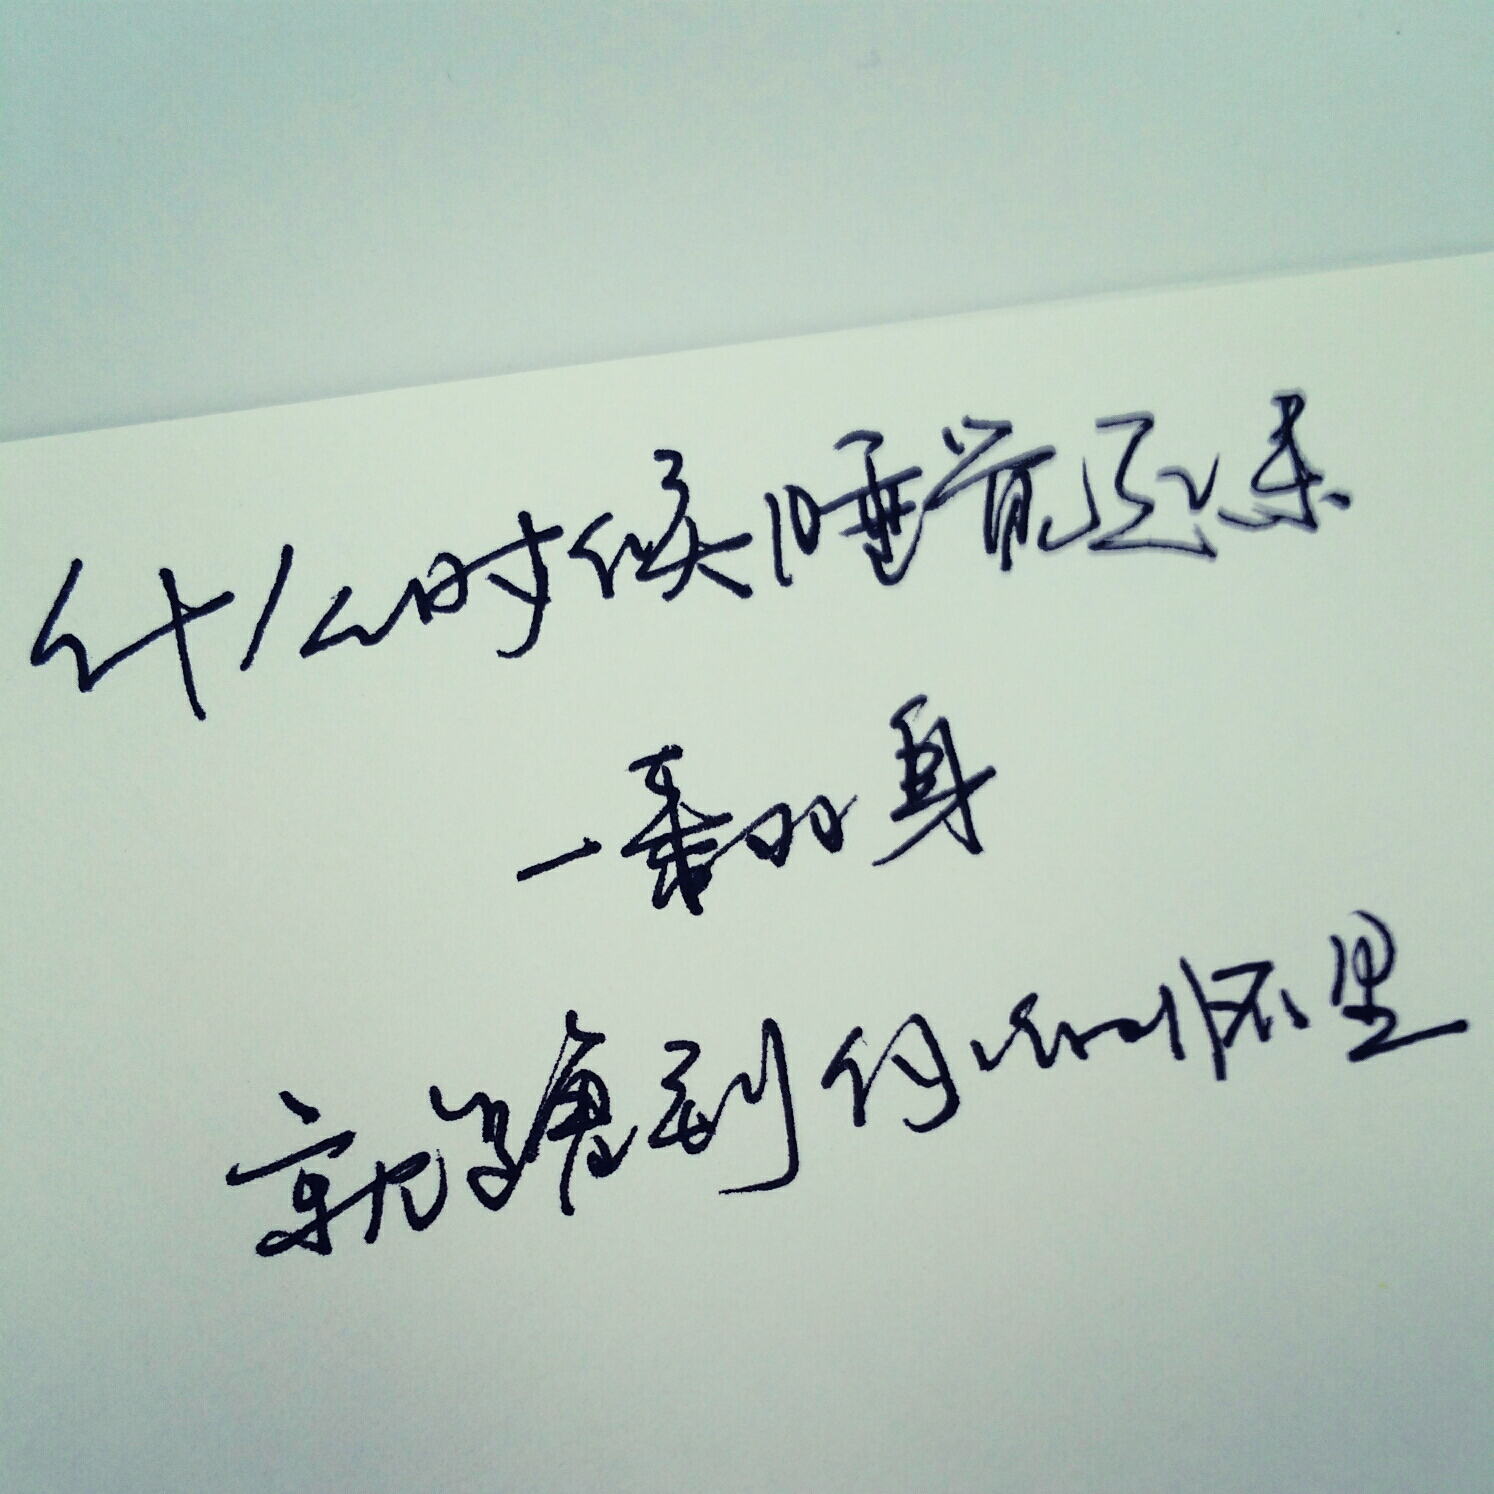 什么时候睡觉
一翻身
就 到你的怀里